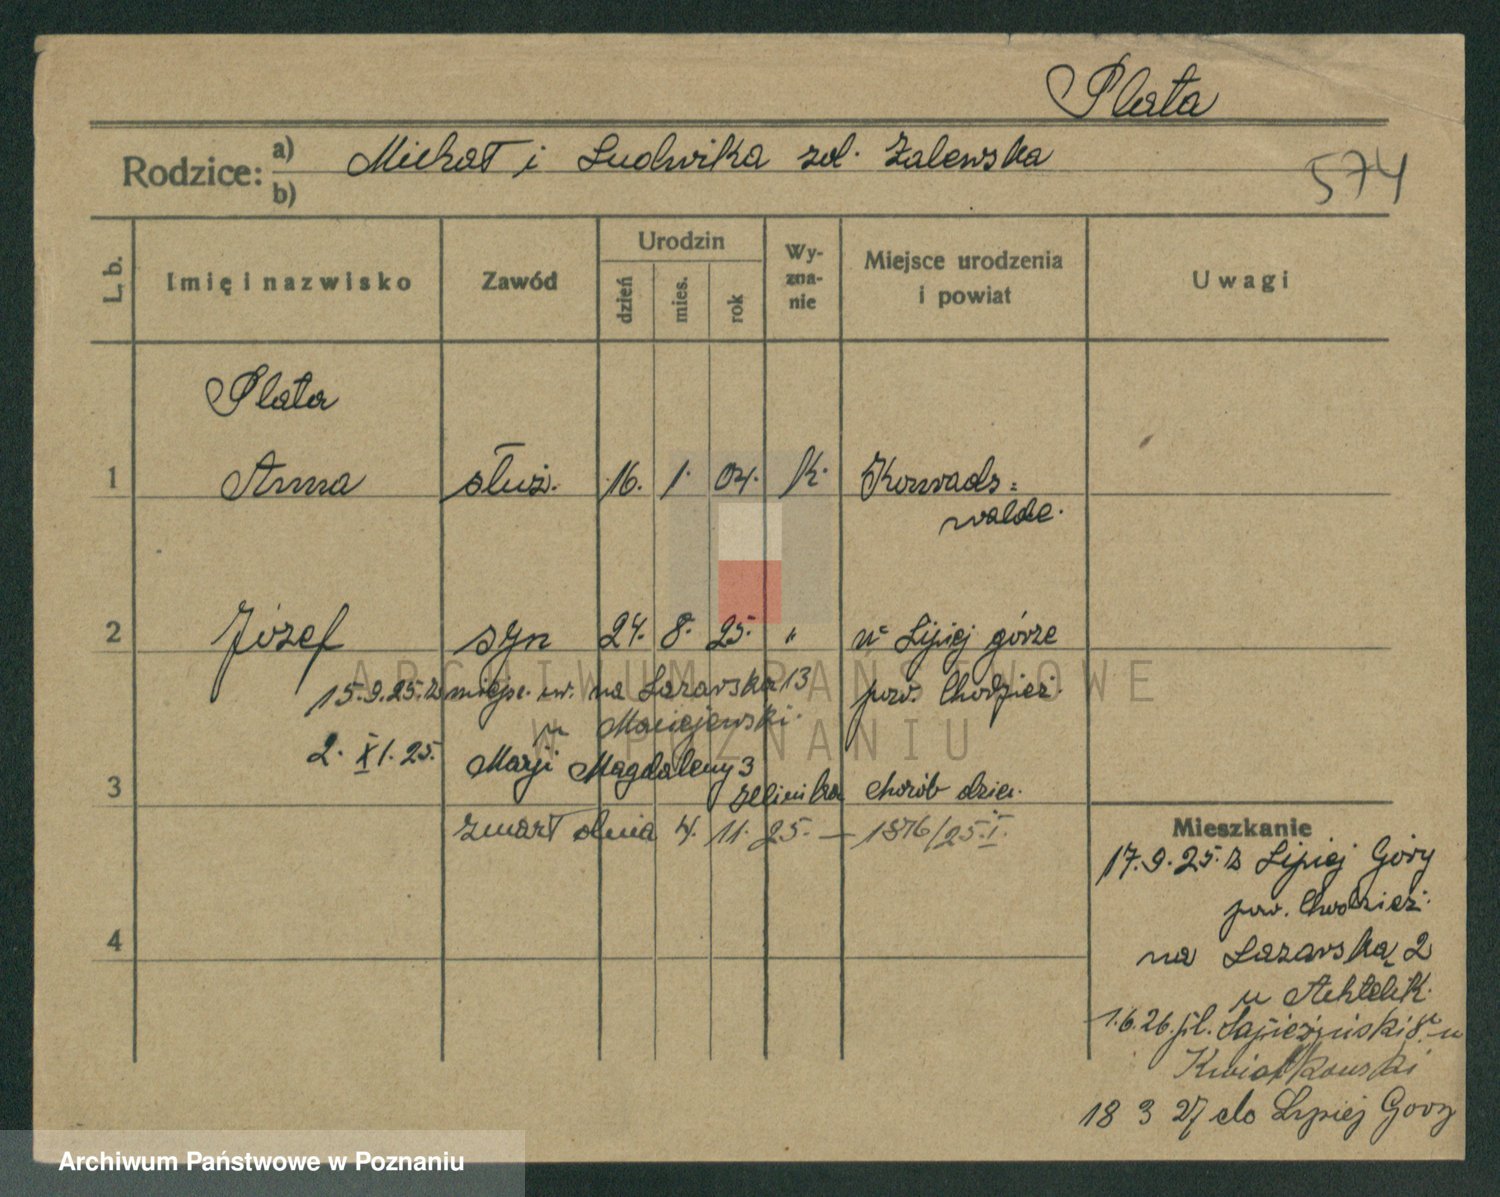 Plata
Rodzice: a) Michał i Ludwika zd. Zalewska
b)
574
L. b.
Imię i nazwisko
Zawód
Urodzin
dzień
mies.
rok
Wy-
zna-
nie
Miejsce urodzenia
i powiat
Uwagi
Plata
1 Anna służ. 16. 1. 04. k. Konrads=
walde.
2 Józef syn 24. 8. 25. " w Lipiej górze
15.9.25. z miejsc. ur. na Łazarska 13 pow. Chodzież.
u Maciejewski.
2. XI. 25. Marji Magdaleny 3
3 klinika chorób dziec.
zmarł dnia 4. 11. 25. — 1876/25.I.
4
Mieszkanie
17.9.25. z Lipiej Góry
pow. Chodzież.
na Łazarską 2
u Achtelik.
1.6.26. pl. Sapieżyński 8 u
Kwiatkowski
18 3 27 do Lipiej Góry
ARCHIWUM PAŃSTWOWE
W POZNANIU
Archiwum Państwowe w Poznaniu